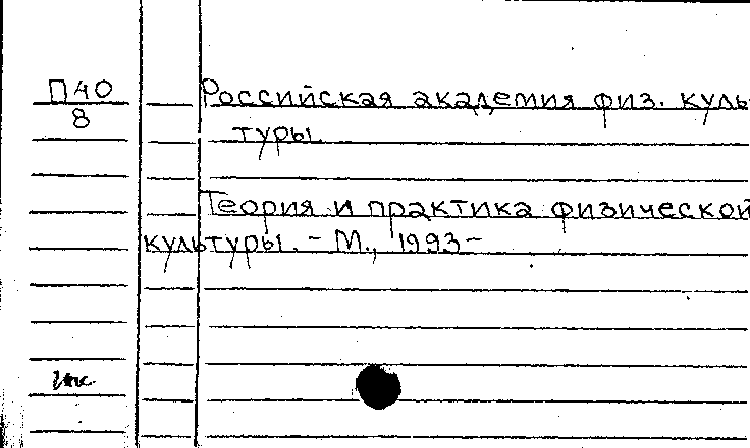 П40
8
Российская академия физ. куль-
туры
Теория и практика физической
культуры. - М., 1993-